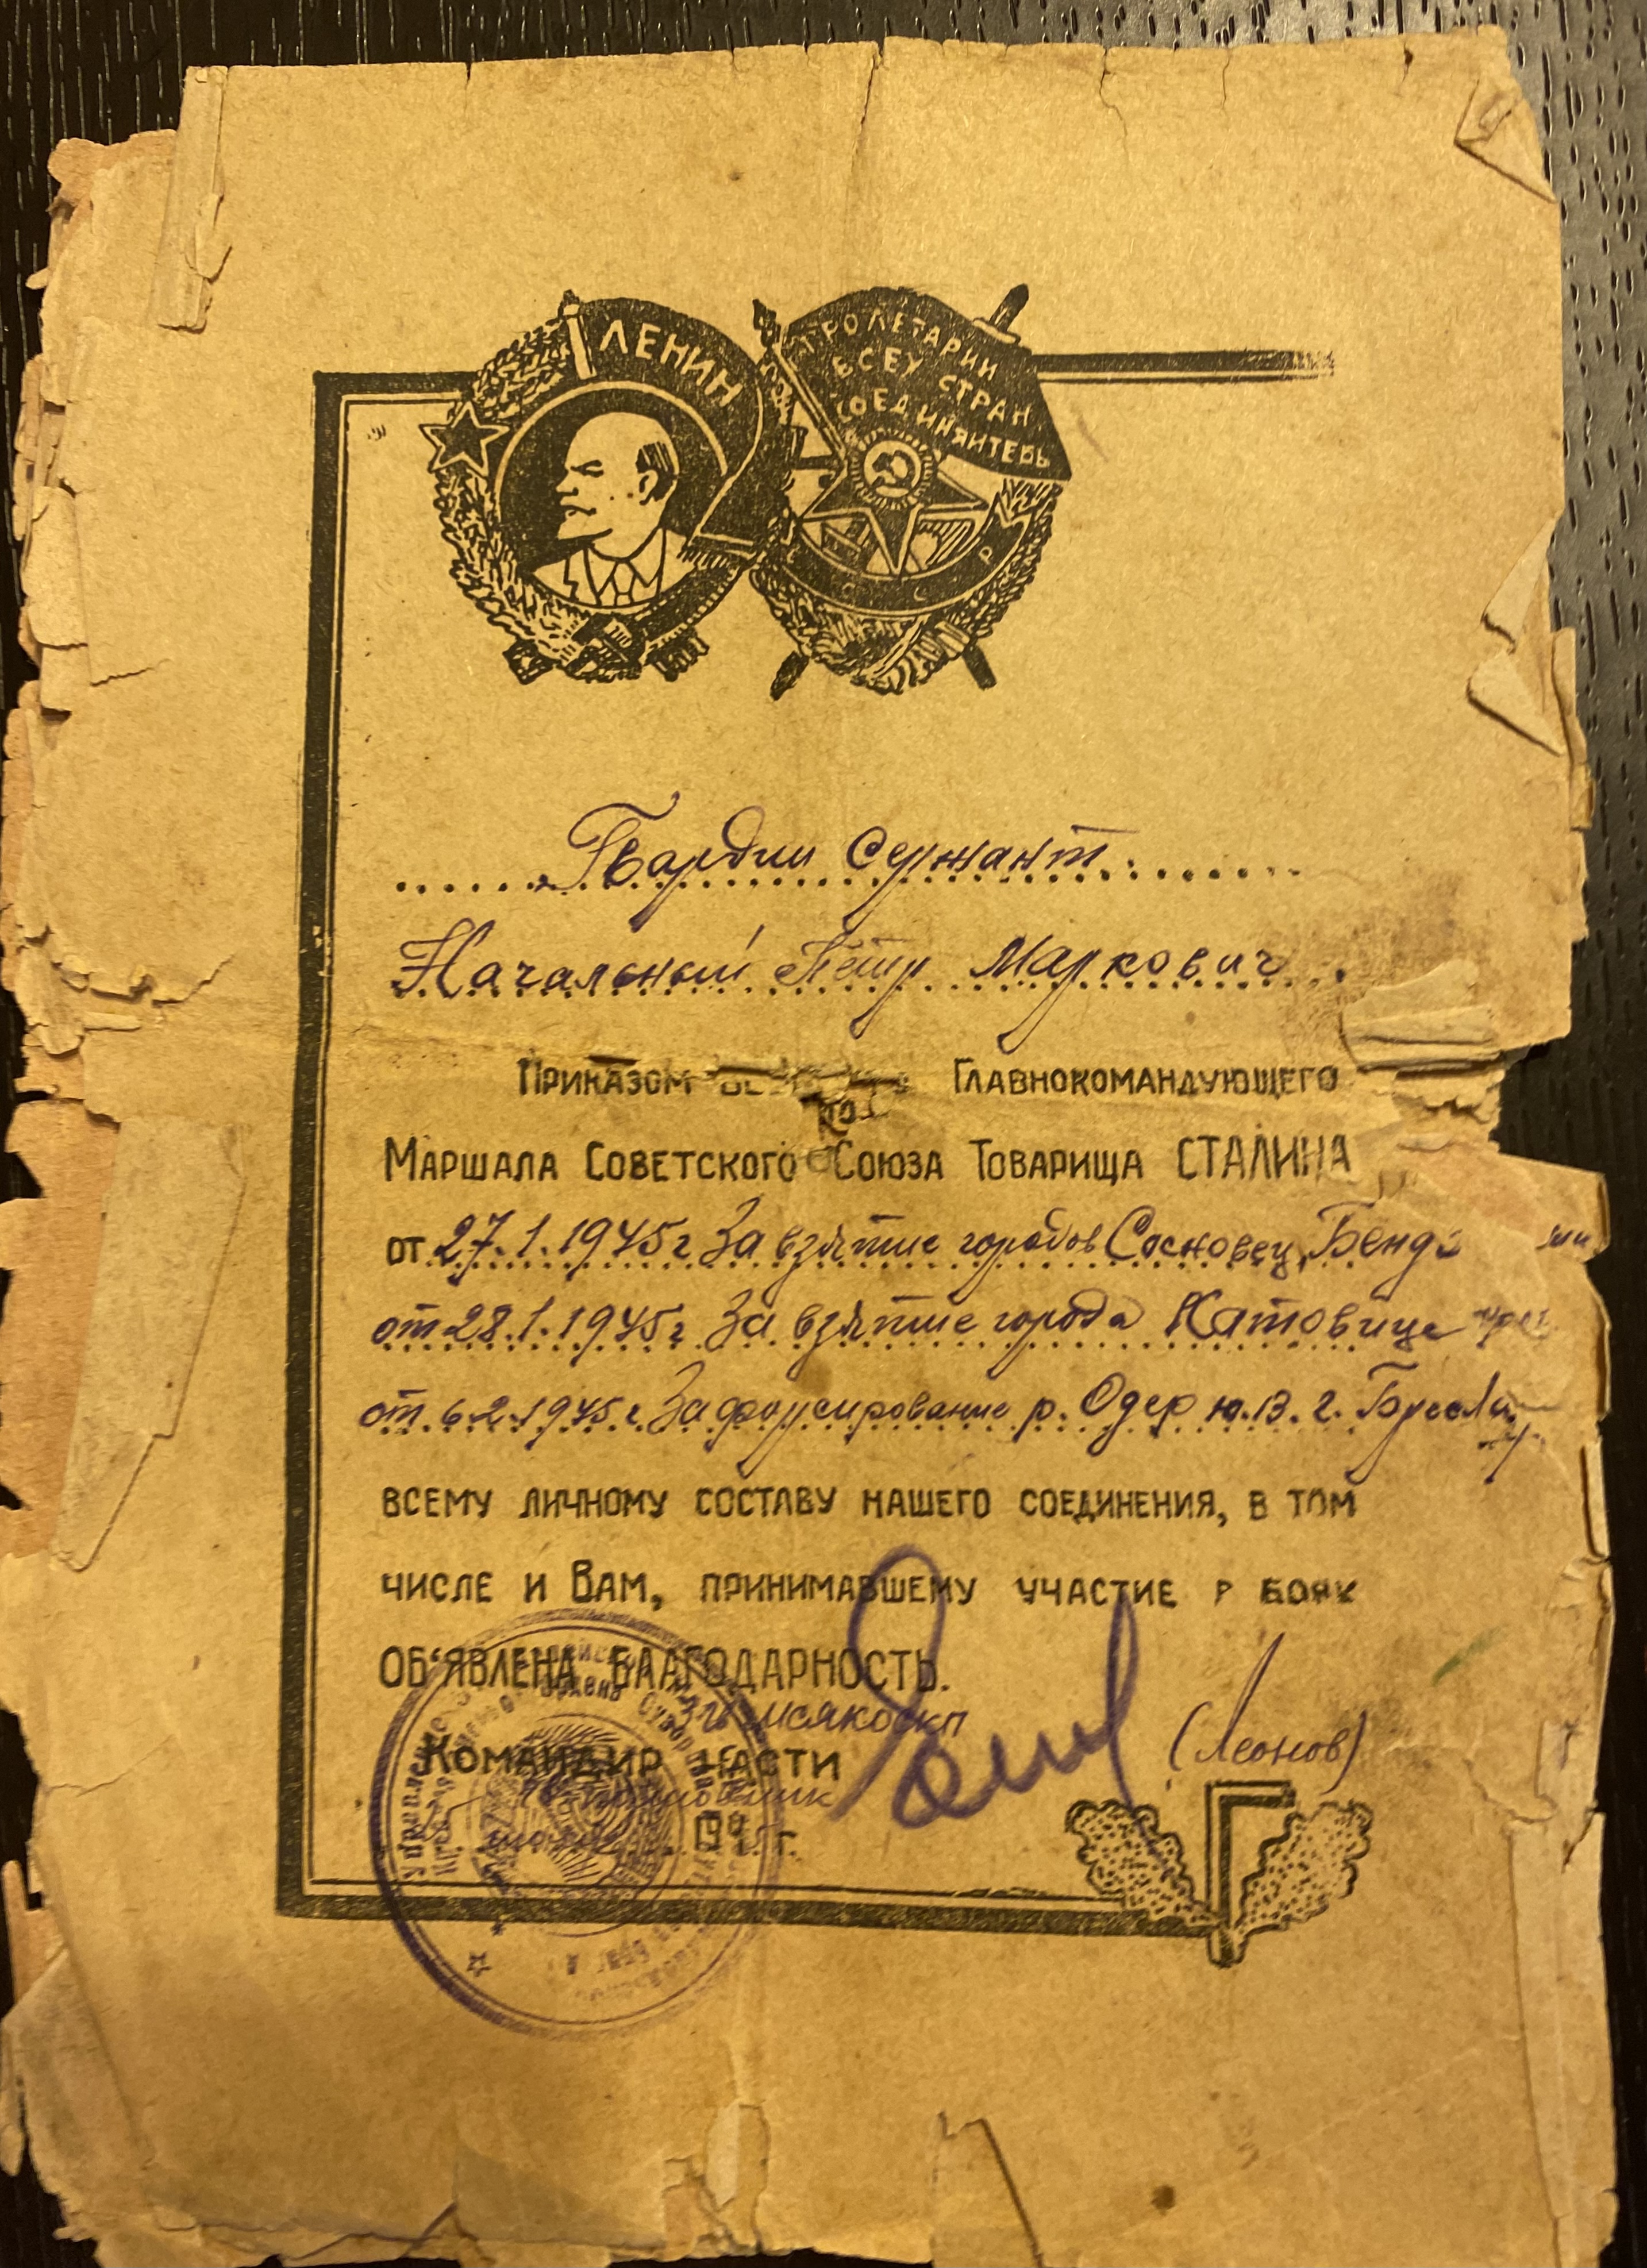 ЛЕНИН
ПРОЛЕТАРИИ
ВСЕХ СТРАН
СОЕДИНЯЙТЕСЬ
СССР
Гвардии сержант
Начальный Пётр Маркович
ПРИКАЗОМ ГЛАВНОКОМАНДУЮЩЕГО
МАРШАЛА СОВЕТСКОГО СОЮЗА ТОВАРИЩА СТАЛИНА
от 27.1.1945г За взятие городов Сосновец,
от 28.1.1945г За взятие города Катовице
от 6.2.1945г. За форсирование р. Одер ю.в. г. Бреслау
ВСЕМУ ЛИЧНОМУ СОСТАВУ НАШЕГО СОЕДИНЕНИЯ, В ТОМ
ЧИСЛЕ И ВАМ, ПРИНИМАВШЕМУ УЧАСТИЕ В БОЯХ
ОБ'ЯВЛЕНА БЛАГОДАРНОСТЬ.
КОМАНДИР ЧАСТИ
(Леонов)
1945 г.